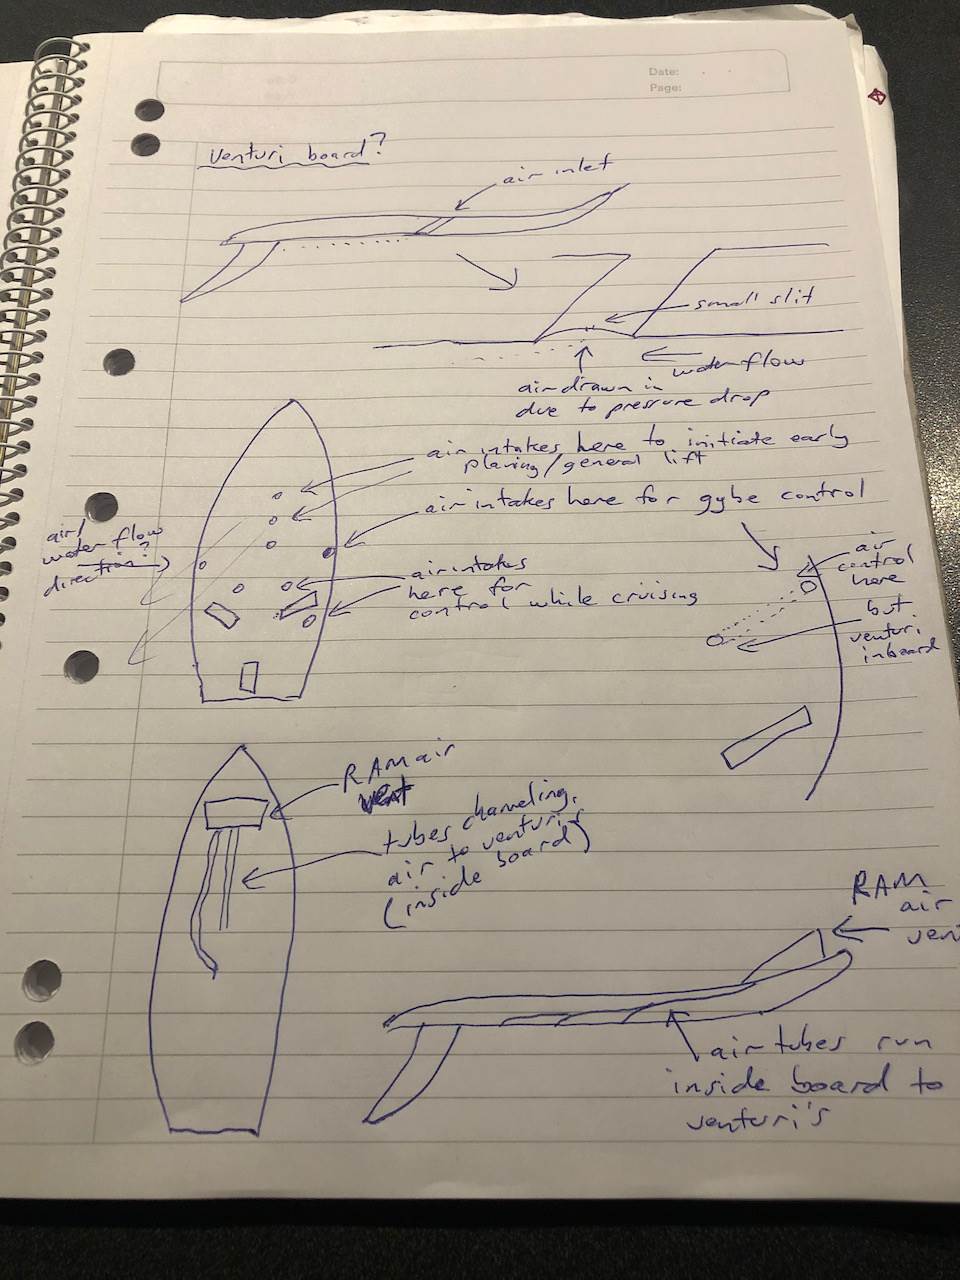 Date:
Page:
Venturi board?
air inlet
small slit
water flow
air drawn in
due to pressure drop
air intakes here to initiate early
planing/general lift
air intakes here for gybe control
air/
water flow
direction?
air intakes
here for
control while cruising
air
control
here
but
venturi
inboard
RAM air
vent
tubes channeling
air to venturi's
(inside board)
RAM
air
ven
air tubes run
inside board to
venturi's